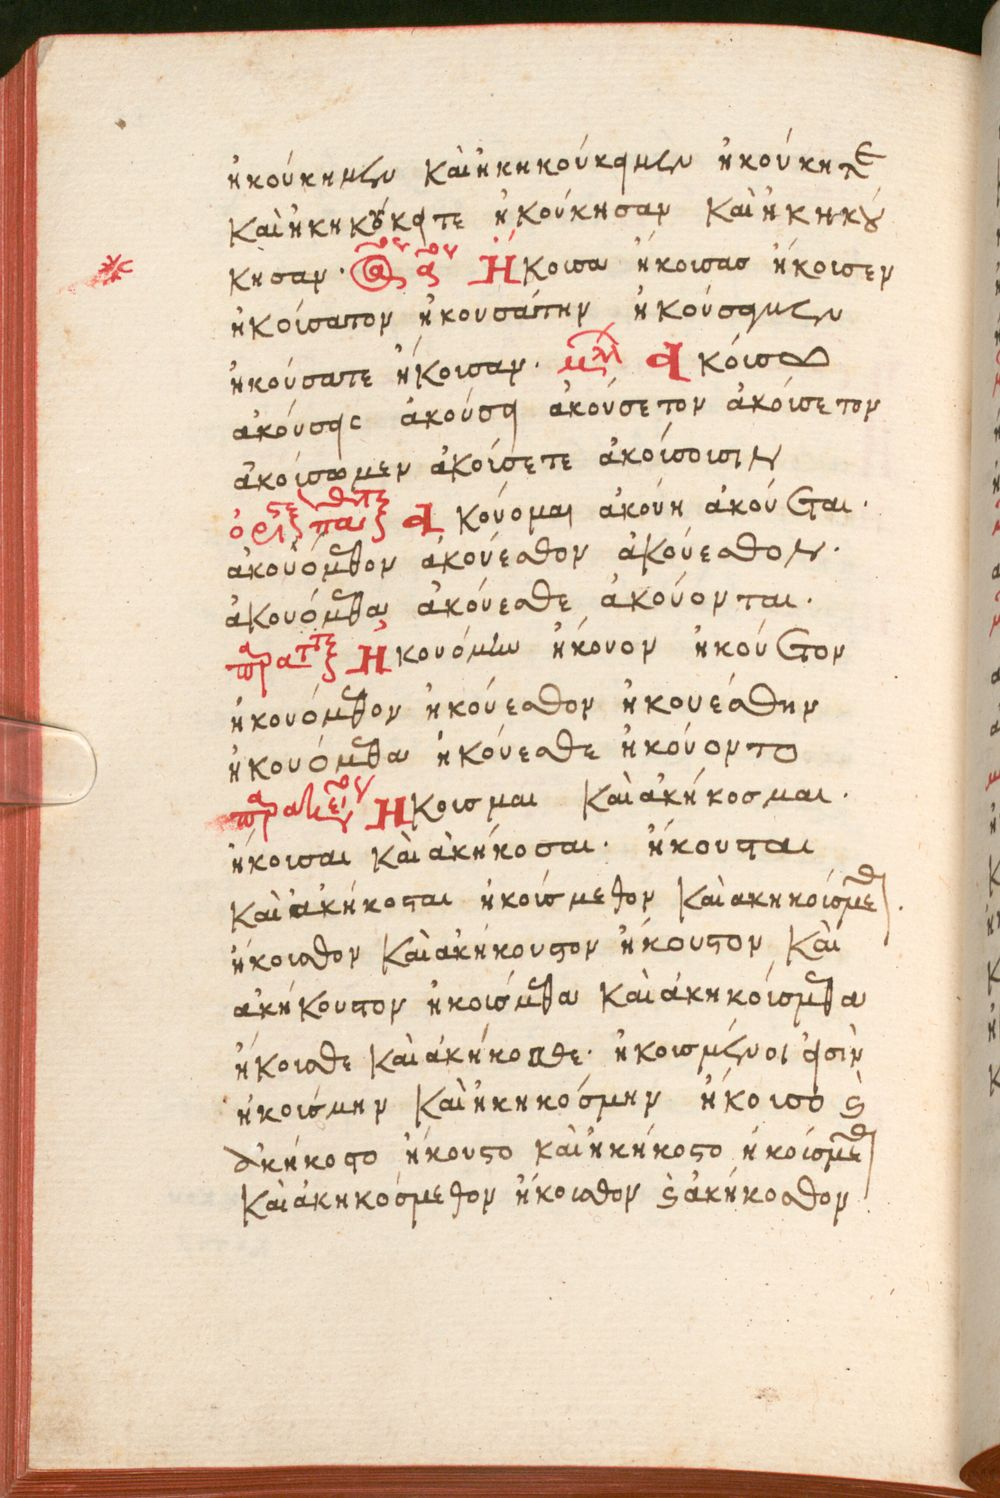 ἠκούκημεν Καὶ ἠκηκούκαμεν ἠκούκητε
Καὶ ἠκηκούκατε ἠκούκησαν Καὶ ἠκηκού
κησαν· Ἤκουσα ἤκουσασ ἤκουσεν
ἠκούσατον ἠκουσάτην ἠκούσαμεν
ἠκούσατε ἤκουσαν· ἀκούσω
ἀκούσεις ἀκούσει ἀκούσετον ἀκούσετον
ἀκούσωμεν ἀκούσετε ἀκούσουσιν
Ἀκούομαι ἀκούη ἀκούεται·
ἀκουόμεθον ἀκούεσθον ἀκούεσθον·
ἀκουόμεθα ἀκούεσθε ἀκούονται·
Ἠκουόμην ἠκούου ἠκούετον
ἠκουόμεθον ἠκούεσθον ἠκουέσθην
ἠκουόμεθα ἠκούεσθε ἠκούοντο
Ἤκουσμαι Καὶ ἀκήκοσμαι·
ἤκουσαι Καὶ ἀκήκοσαι· ἤκουσται
Καὶ ἀκήκοσται ἠκούσμεθον Καὶ ἀκηκούσμεθον·
ἤκουσθον Καὶ ἀκήκουστον ἤκουστον Καὶ
ἀκήκουστον ἠκούσμεθα Καὶ ἀκηκούσμεθα
ἤκουσθε Καὶ ἀκήκοσθε· ἠκουσμένοι εἰσὶν
ἠκούσμην Καὶ ἠκηκόσμην ἤκουσο Καὶ
ἀκήκοσο ἤκουστο καὶ ἠκήκοστο ἠκούσμεθον
Καὶ ἀκηκόσμεθον ἤκουσθον Καὶ ἀκήκοσθον